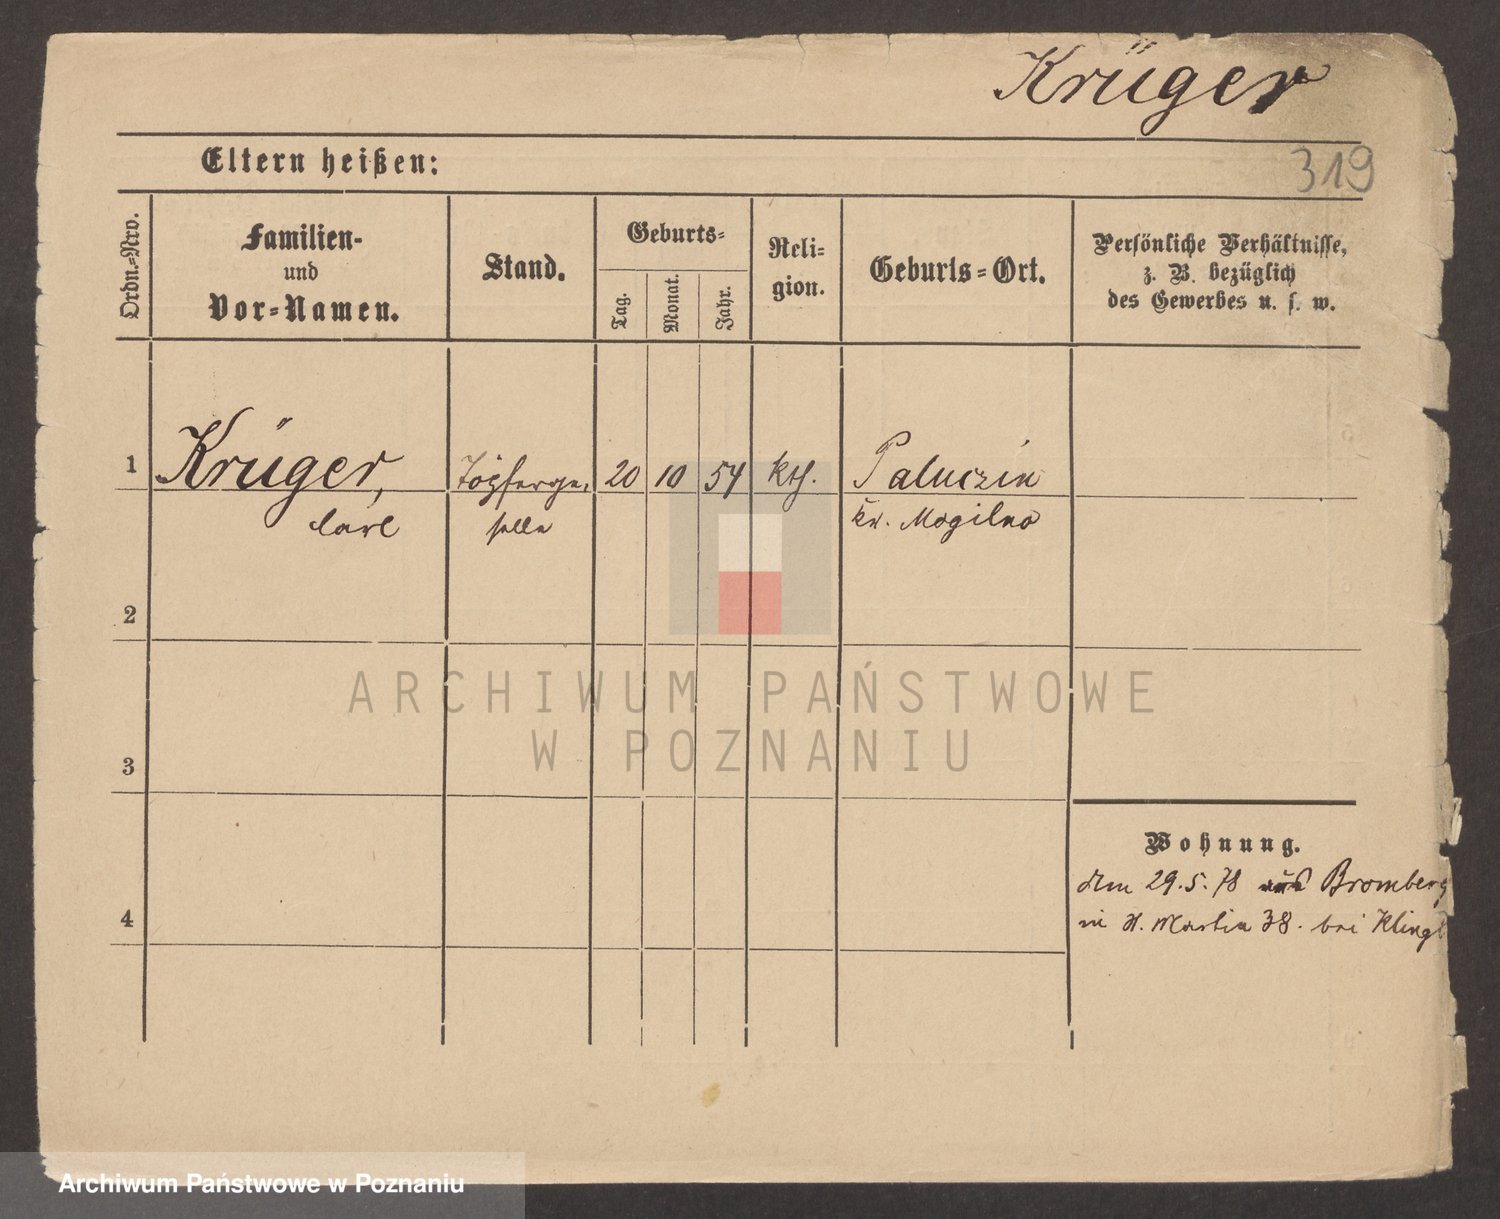 Krüger
Eltern heißen:
319
Ordn.-Nro.
Familien-
und
Vor-Namen.
Stand.
Geburts-
Tag.
Monat.
Jahr.
Reli-
gion.
Geburts-Ort.
Persönliche Verhältnisse,
z. B. bezüglich
des Gewerbes u. s. w.
1
Krüger,
Carl
Töpferge-
selle
20
10
54
kth.
Paluczin
Kr. Mogilno
2
3
4
Wohnung.
den 29.5.78 aus Bromberg
in St. Martin 38. bei
ARCHIWUM PAŃSTWOWE
W POZNANIU
Archiwum Państwowe w Poznaniu